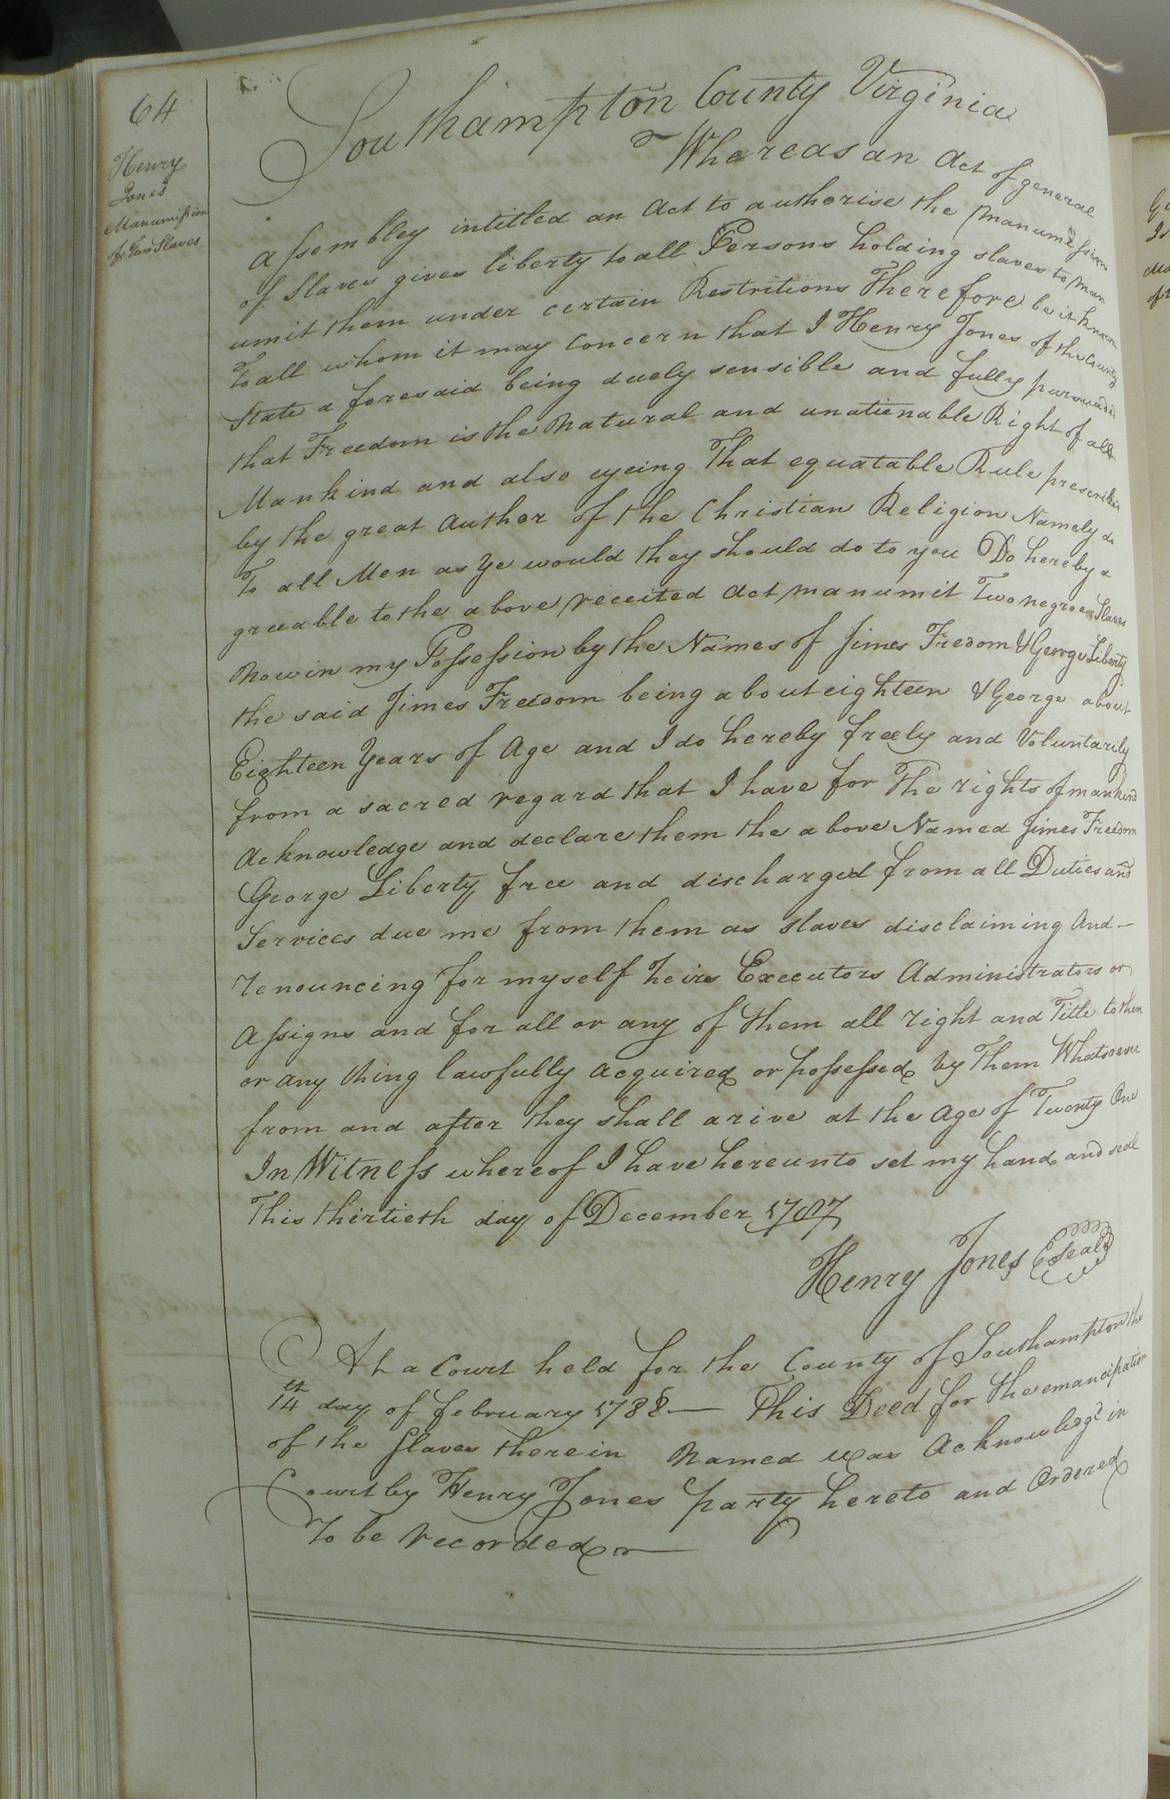 64
Henry
Jones
Manumission
for Two Slaves
Southampton County Virginia
Whereas an Act of general
Assembley intitled an Act to authorise the manumission
of Slaves gives liberty to all Persons holding slaves to man
umit them under certain Restritions Therefore be it known
To all whom it may Concern that I Henry Jones of the County
State a foresaid being duely sensible and fully persuaded
that Freedom is the Natural and unatienable Right of all
Mankind and also eyeing That equatable Rule prescribed
by the great Auther of the Christian Religion Namely do
To all Men as Ye would they should do to you Do hereby a
greeable to the above receited Act manumit Two negroe Slaves
Now in my Possession by the Names of Jimes Fredom & George Liberty
the said Jimes Freedom being about eighteen & George about
Eighteen Years of Age and I do hereby freely and Voluntarily
from a sacred regard that I have for The rights of mankind
Acknowledge and declare them the above Named Jimes Freedom
George Liberty free and discharged from all Duties and
Services due me from them as slaves disclaiming And -
renouncing for myself heirs Executors Administrators or
Assigns and for all or any of them all right and Title to them
or any thing lawfully acquired or possessed by Them Whatsoever
from and after they shall arive at the Age of Twenty One
In Witness whereof I have hereunto set my hand and seal
This thirtieth day of December 1787
Henry Jones Seal
At a Court held for the County of Southampton the
14th day of february 1788 — This Deed for the emancipation
of the Slaves therein Named was Acknowledg'd in
Court by Henry Jones party hereto and Ordered
To be recorded